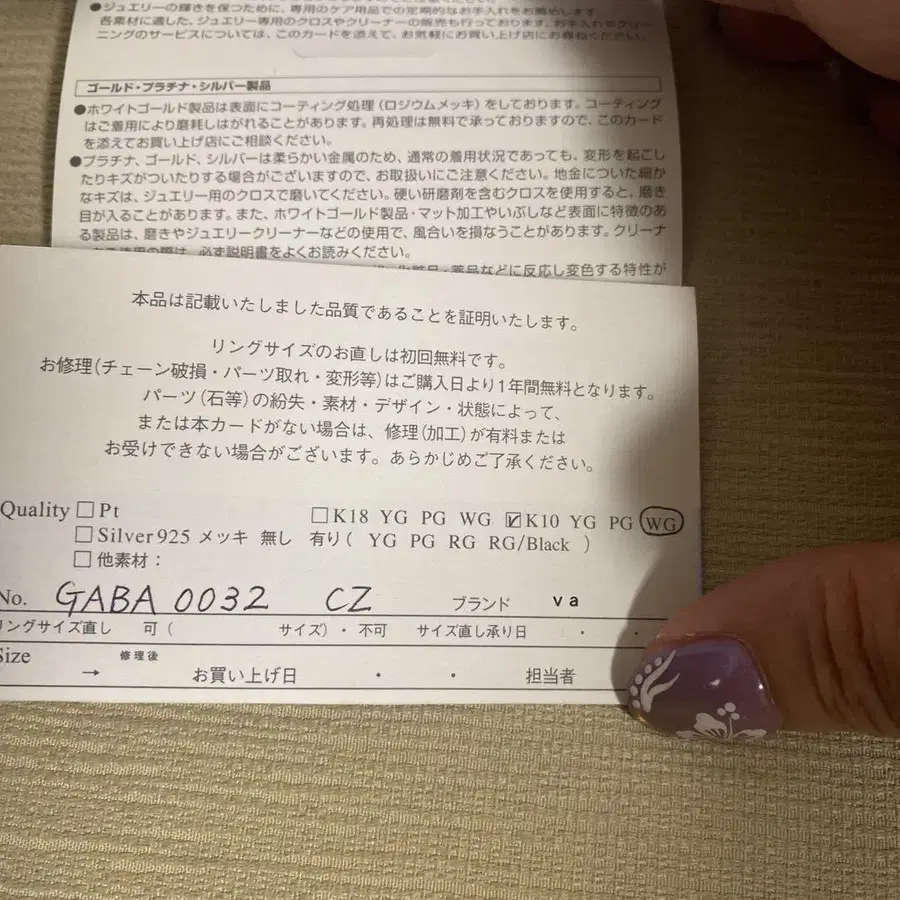 ●ジュエリーの輝きを保つために、専用のケア用品での定期的なお手入れをお薦めします。
各素材に適した、ジュエリー専用のクロスやクリーナーの販売も行っております。お手入れやクリー
ニングのサービスについては、このカードを添えて、お気軽にお買い上げ店にお尋ねください。
ゴールド・プラチナ・シルバー製品
●ホワイトゴールド製品は表面にコーティング処理（ロジウムメッキ）をしております。コーティング
はご着用により磨耗しはがれることがあります。再処理は無料で承っておりますので、このカード
を添えてお買い上げ店にご相談ください。
●プラチナ、ゴールド、シルバーは柔らかい金属のため、通常の着用状況であっても、変形を起こし
たりキズがついたりする場合がございますので、お取扱いにご注意ください。地金についた細か
なキズは、ジュエリー用のクロスで磨いてください。硬い研磨剤を含むクロスを使用すると、磨き
目が入ることがあります。また、ホワイトゴールド製品・マット加工やいぶしなど表面に特徴のあ
る製品は、磨きやジュエリークリーナーなどの使用で、風合いを損なうことがあります。クリーナ
の際は、必ず説明書をよくお読みください。
化粧品・薬品などに反応し変色する特性が
本品は記載いたしました品質であることを証明いたします。
リングサイズのお直しは初回無料です。
お修理(チェーン破損・パーツ取れ・変形等)はご購入日より1年間無料となります。
パーツ(石等)の紛失・素材・デザイン・状態によって、
または本カードがない場合は、修理(加工)が有料または
お受けできない場合がございます。あらかじめご了承ください。
Quality □Pt □K18 YG PG WG ☑K10 YG PG WG
□Silver925 メッキ 無し 有り( YG PG RG RG/Black )
□他素材：
No. GABA 0032 CZ ブランド va
リングサイズ直し 可( サイズ)・不可 サイズ直し承り日 ・ ・
Size → 修理後 お買い上げ日 ・ ・ 担当者